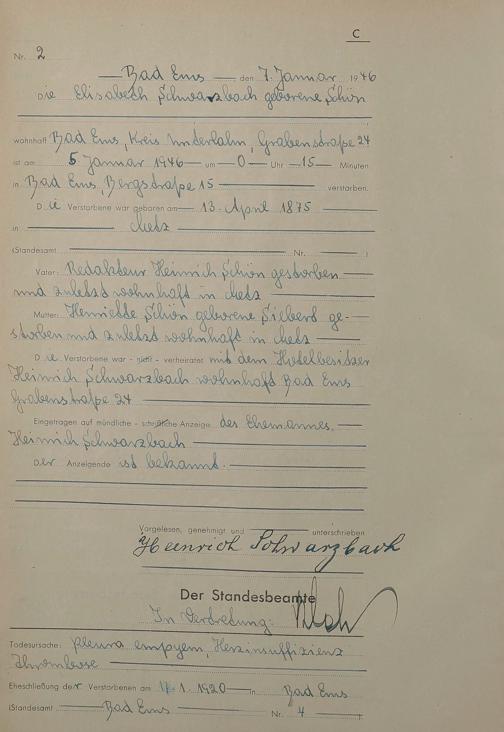 C
Nr. 2
Bad Ems den 7. Januar 1946
Die Elisabeth Schwarzbach geborene Schön
wohnhaft Bad Ems, Kreis Unterlahn, Grabenstraße 24
ist am 5 Januar 1946 um 0 Uhr 15 Minuten
in Bad Ems, Bergstraße 15 verstorben.
Die Verstorbene war geboren am 13. April 1875
in Metz
(Standesamt Nr. )
Vater: Redakteur Heinrich Schön gestorben
und zuletzt wohnhaft in Metz
Mutter: Henriette Schön geborene Siebert ge-
storben und zuletzt wohnhaft in Metz
Die Verstorbene war - nicht - verheiratet mit dem Hotelbesitzer
Heinrich Schwarzbach wohnhaft Bad Ems
Grabenstraße 24
Eingetragen auf mündliche - schriftliche Anzeige des Ehemannes
Heinrich Schwarzbach
Der Anzeigende ist bekannt.
Vorgelesen, genehmigt und unterschrieben
Heinrich Schwarzbach
Der Standesbeamte
In Vertretung:
Todesursache: Pleura empyem, Herzinsuffizienz
Thrombose
Eheschließung der Verstorbenen am 1. 1920 in Bad Ems
(Standesamt Bad Ems Nr. 4 )